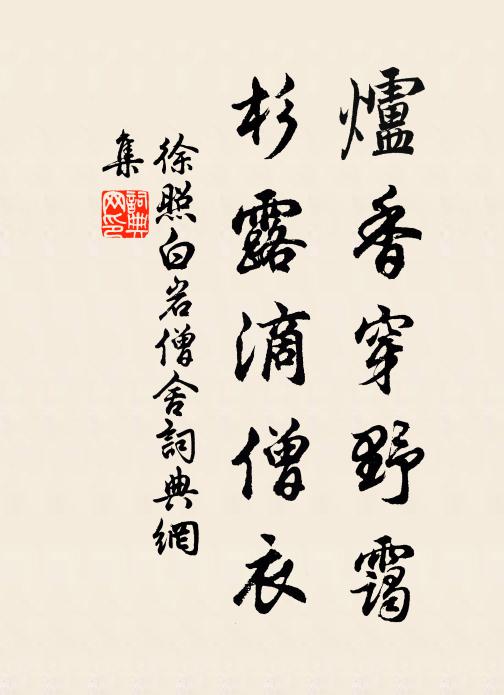 爐香穿野靄
杉露滴僧衣
徐照白岩僧舍詞典網
集
詞典
网印